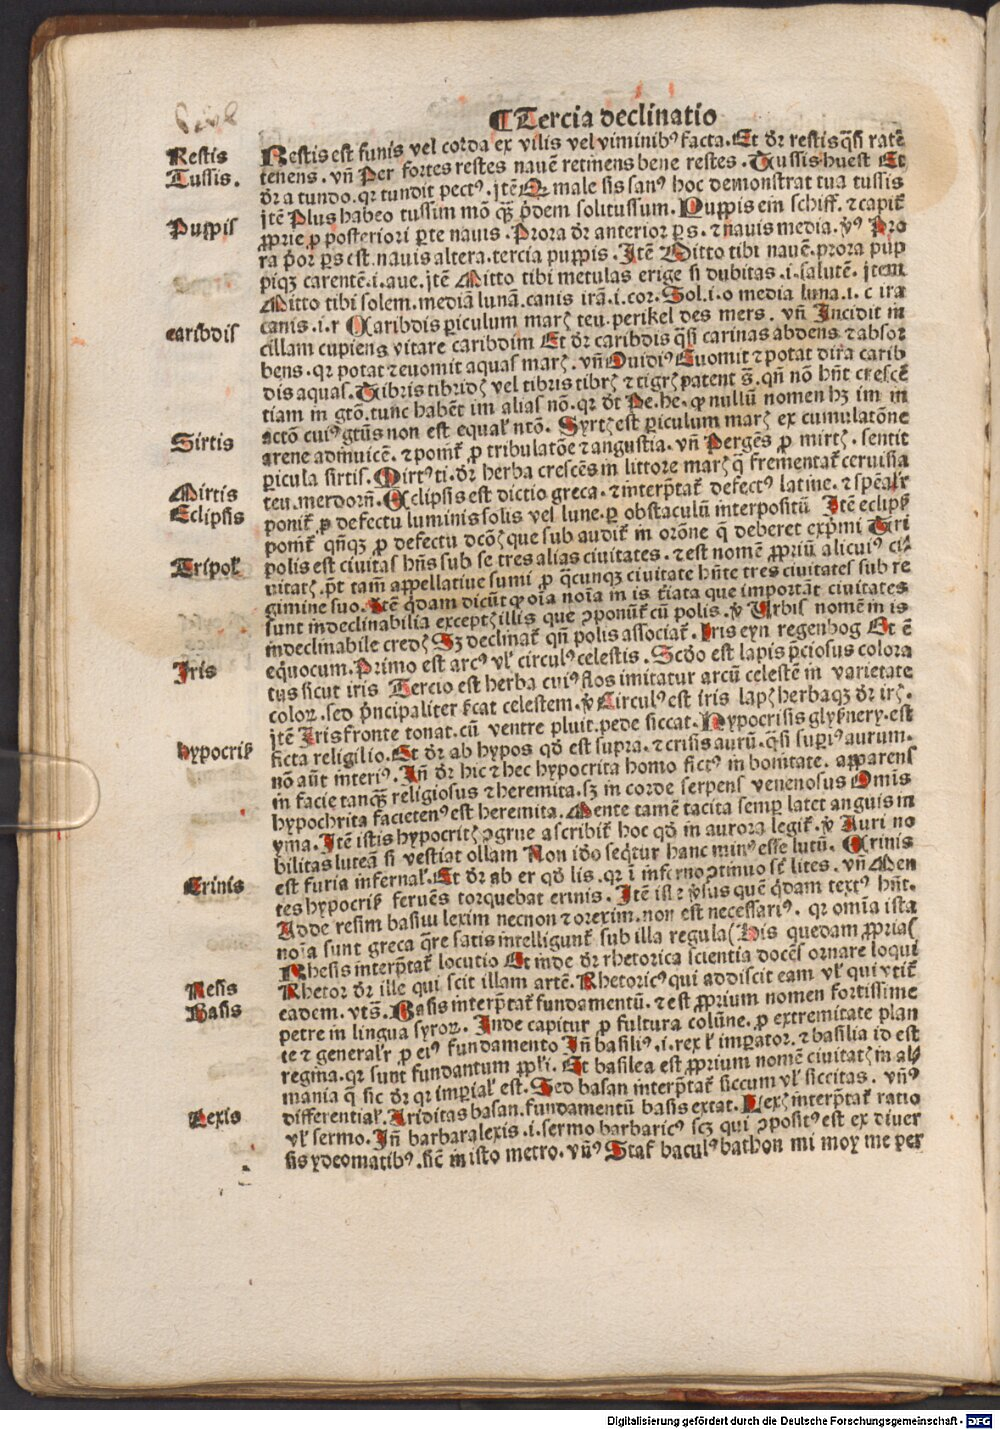 ¶Tercia declinatio
Restis
Restis est funis vel corda ex vilis vel viminibꝰ facta. Et dr̄ restis q̄si ratē
Tussis.
tenens. vn̄ Per fortes restes nauē retinens bene restes. Tussis huest Et
dr̄ a tundo. qr tundit pectꝰ. jtē Qr male sis sanꝰ hoc demonstrat tua tussis
jtē Plus habeo tussim mō qꝫ pridem solitussum. Puppis ein schiff. ⁊ capit̉
Puppis
ꝓprie ꝓ posteriori ꝑte nauis. Prora dr̄ anterior ꝑs. ⁊ nauis media. ꝟꝰ Pro
ra p̄or ꝑs est. nauis altera. tercia puppis. Jtē Mitto tibi nauē. prora pup
piqꝫ carentē. i. aue. jtē Mitto tibi metulas erige si dubitas. i. salutē. jtem
Mitto tibi solem. mediā lunā. canis irā. i. cor. Sol. i. o media luna. i. c ira
caribdis
canis. i. r Caribdis ꝑiculum marꝭ teu. perikel des mers. vn̄ Incidit in
cillam cupiens vitare caribdim Et dr̄ caribdis q̄si carinas abdens ⁊ absor
bens. qr potat ⁊ euomit aquas marꝭ. vn̄ Ouidiꝰ Euomit ⁊ potat dira carib
dis aquas. Tibris tibridꝭ vel tibris tibrꝭ ⁊ tigrꝭ patent s̄. qn̄ nō hn̄t crescē
tiam in gtō. tunc habēt im alias nō. qr dt̄ Pe. he. ꝙ nullū nomen hꝫ im in
Sirtis
actō cuiꝰ gtūs non est equal̓ ntō. Syrtꝭ est ꝑiculum marꝭ ex cumulatōne
arene adinuicē. ⁊ ponit̉ ꝓ tribulatōe ⁊ angustia. vn̄ Pergēs ꝓ mirtꝭ. sentit
ꝑicula sirtis. Mirtꝰ ti. dr̄ herba crescēs in littore marꝭ q̄ frementat̉ ceruisia
Mirtis
teu. merdorn̄. Eclipsis est dictio greca. ⁊ interp̄tat̉ defectꝰ latine. ⁊ spēal̓r
Eclipsis
ponit̉ ꝓ defectu luminis solis vel lune. ꝑ obstaculū interpositū Jtē eclipsꝭ
ponit̉ qn̄qꝫ ꝓ defectu dcōꝭ que sub audit̉ in orōne q̄ deberet exp̄mi Tri
Tripol̓
polis est ciuitas hn̄s sub se tres alias ciuitates. ⁊ est nomē ꝓpriū alicuiꝰ ci/
uitatꝭ. p̄t tam̄ appellatiue sumi ꝓ q̄cunqꝫ ciuitate hn̄te tres ciuitates sub re
gimine suo. Jtē q̄dam dicūt ꝙ oīa noīa in is t̄iata que importāt ciuitates
sunt indeclinabilia exceptꝭ illis que ↄponūt̉ cū polis. ꝟ Urbis nomē in is
indeclinabile credꝭ Sꝫ declinat̉ qn̄ polis associat̉. Iris eyn regenbog Et ē
Iris
eq̄uocum. Primo est arcꝰ vl̓ circulꝰ celestis. Scd̄o est lapis p̄ciosus colora
tus sicut iris Tercio est herba cuiꝰ flos imitatur arcū celestē in varietate
coloꝝ. sed p̄ncipaliter s̄cat celestem. ꝟ Circulꝰ est iris lapꝭ herbaqꝫ dr̄ irꝭ.
jtē Iris fronte tonat. cū ventre pluit. pede siccat. Hypocrisis glyßnery. est
hypocriß
ficta religilio. Et dr̄ ab hypos qd̄ est supra. ⁊ crisis aurū. q̄si supiꝰ aurum.
nō aūt interiꝰ. Jn̄ dr̄ hic ⁊ hec hypocrita homo fictꝰ in bonitate. apparens
in facie tanqꝫ religiosus ⁊ heremita. sꝫ in corde serpens venenosus Omīs
hypochrita facietenꝰ est heremita. Mente tamē tacita semꝑ latet anguis in
yma. Jtē istis hypocritꝭ ↄgrue ascribit̉ hoc qd̄ in aurora legit̉. ꝟ Auri no
bilitas luteā si vestiat ollam Non id̄o seq̄tur hanc minꝰ esse lutū. Erinis
Erinis
est furia infernal̓. Et dr̄ ab er qd̄ lis. qr ī inferno ↄtinuo sūt lites. vn̄ Men
tes hypocriß feruēs torquebat erinis. Jtē isti ꝟsus quē q̄dam textꝰ hn̄t.
Adde resim basiu lexim necnon ⁊ orexim. non est necessariꝰ. qr omīa ista
noīa sunt greca q̄re satis intelligunt̉ sub illa regula (His quedam ꝓprias
Rhesis interp̄tat̉ locutio Et inde dr̄ rhetorica scientia docēs ornare loqui
Resis
Rhetor dr̄ ille qui scit illam artē. Rhetoricꝰ qui addiscit eam vl̓ qui vtit̉
Basis
eadem. vts̄. Basis interp̄tat̉ fundamentū. ⁊ est ꝓprium nomen fortissime
petre in lingua syroꝝ. Inde capitur ꝓ fultura colūne. ꝓ extremitate plan
te ⁊ general̓r ꝓ eiꝰ fundamento Jn̄ basiliꝰ. i. rex l̓ imꝑator. ⁊ basilia id est
regina. qr sunt fundantum ꝓpl̓i. Et basilea est ꝓprium nomē ciuitatꝭ in al/
mania q̄ sic dr̄ qr imꝑial̓ est. Sed basan interp̄tat̉ siccum vl̓ siccitas. vn̄ꝰ
Lexis
differential̓. Ariditas basan. fundamentū basis extat. Lexꝭ interp̄tat̉ ratio
vl̓ sermo. Jn̄ barbaralexis. i. sermo barbaricꝰ scꝫ qui ↄpositꝰ est ex diuer
sis ydeomatibꝰ. sic̄ in isto metro. vn̄ꝰ Stat̉ baculꝰ bathon mi moy me per
Digitalisierung gefördert durch die Deutsche Forschungsgemeinschaft - DFG